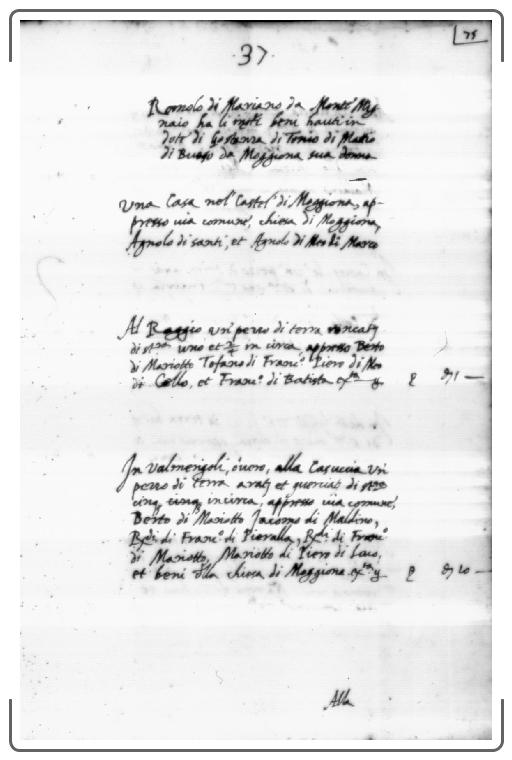 75
37.
Romolo di Mariano da Monte Mig-
naio ha li beni hauti in
dote di Gostanza di Tonio di Matio
di da Moggiona sua donna
Una Casa nel Castel di Moggiona, ap-
presso uia comune, chiesa di Moggiona,
Agnolo di santi, et Agnolo di Meo di Marco
Al Raggio un pezzo di terra
di uno et in circa appresso Berto
di Mariotto Tofano di Franc.º Piero di Meo
di Cello, et Franc.º di Batista
In Valmengoli, ouero, alla Casuccia un
pezzo di terra et di
cinq in circa, appresso uia comune,
Berto di Mariotto Jacomo di Maldino,
di Franc.º di Pieralla, di Franc.º
di Mariotto, Mariotto di Piero di
et beni della chiesa di Moggiona
Alla